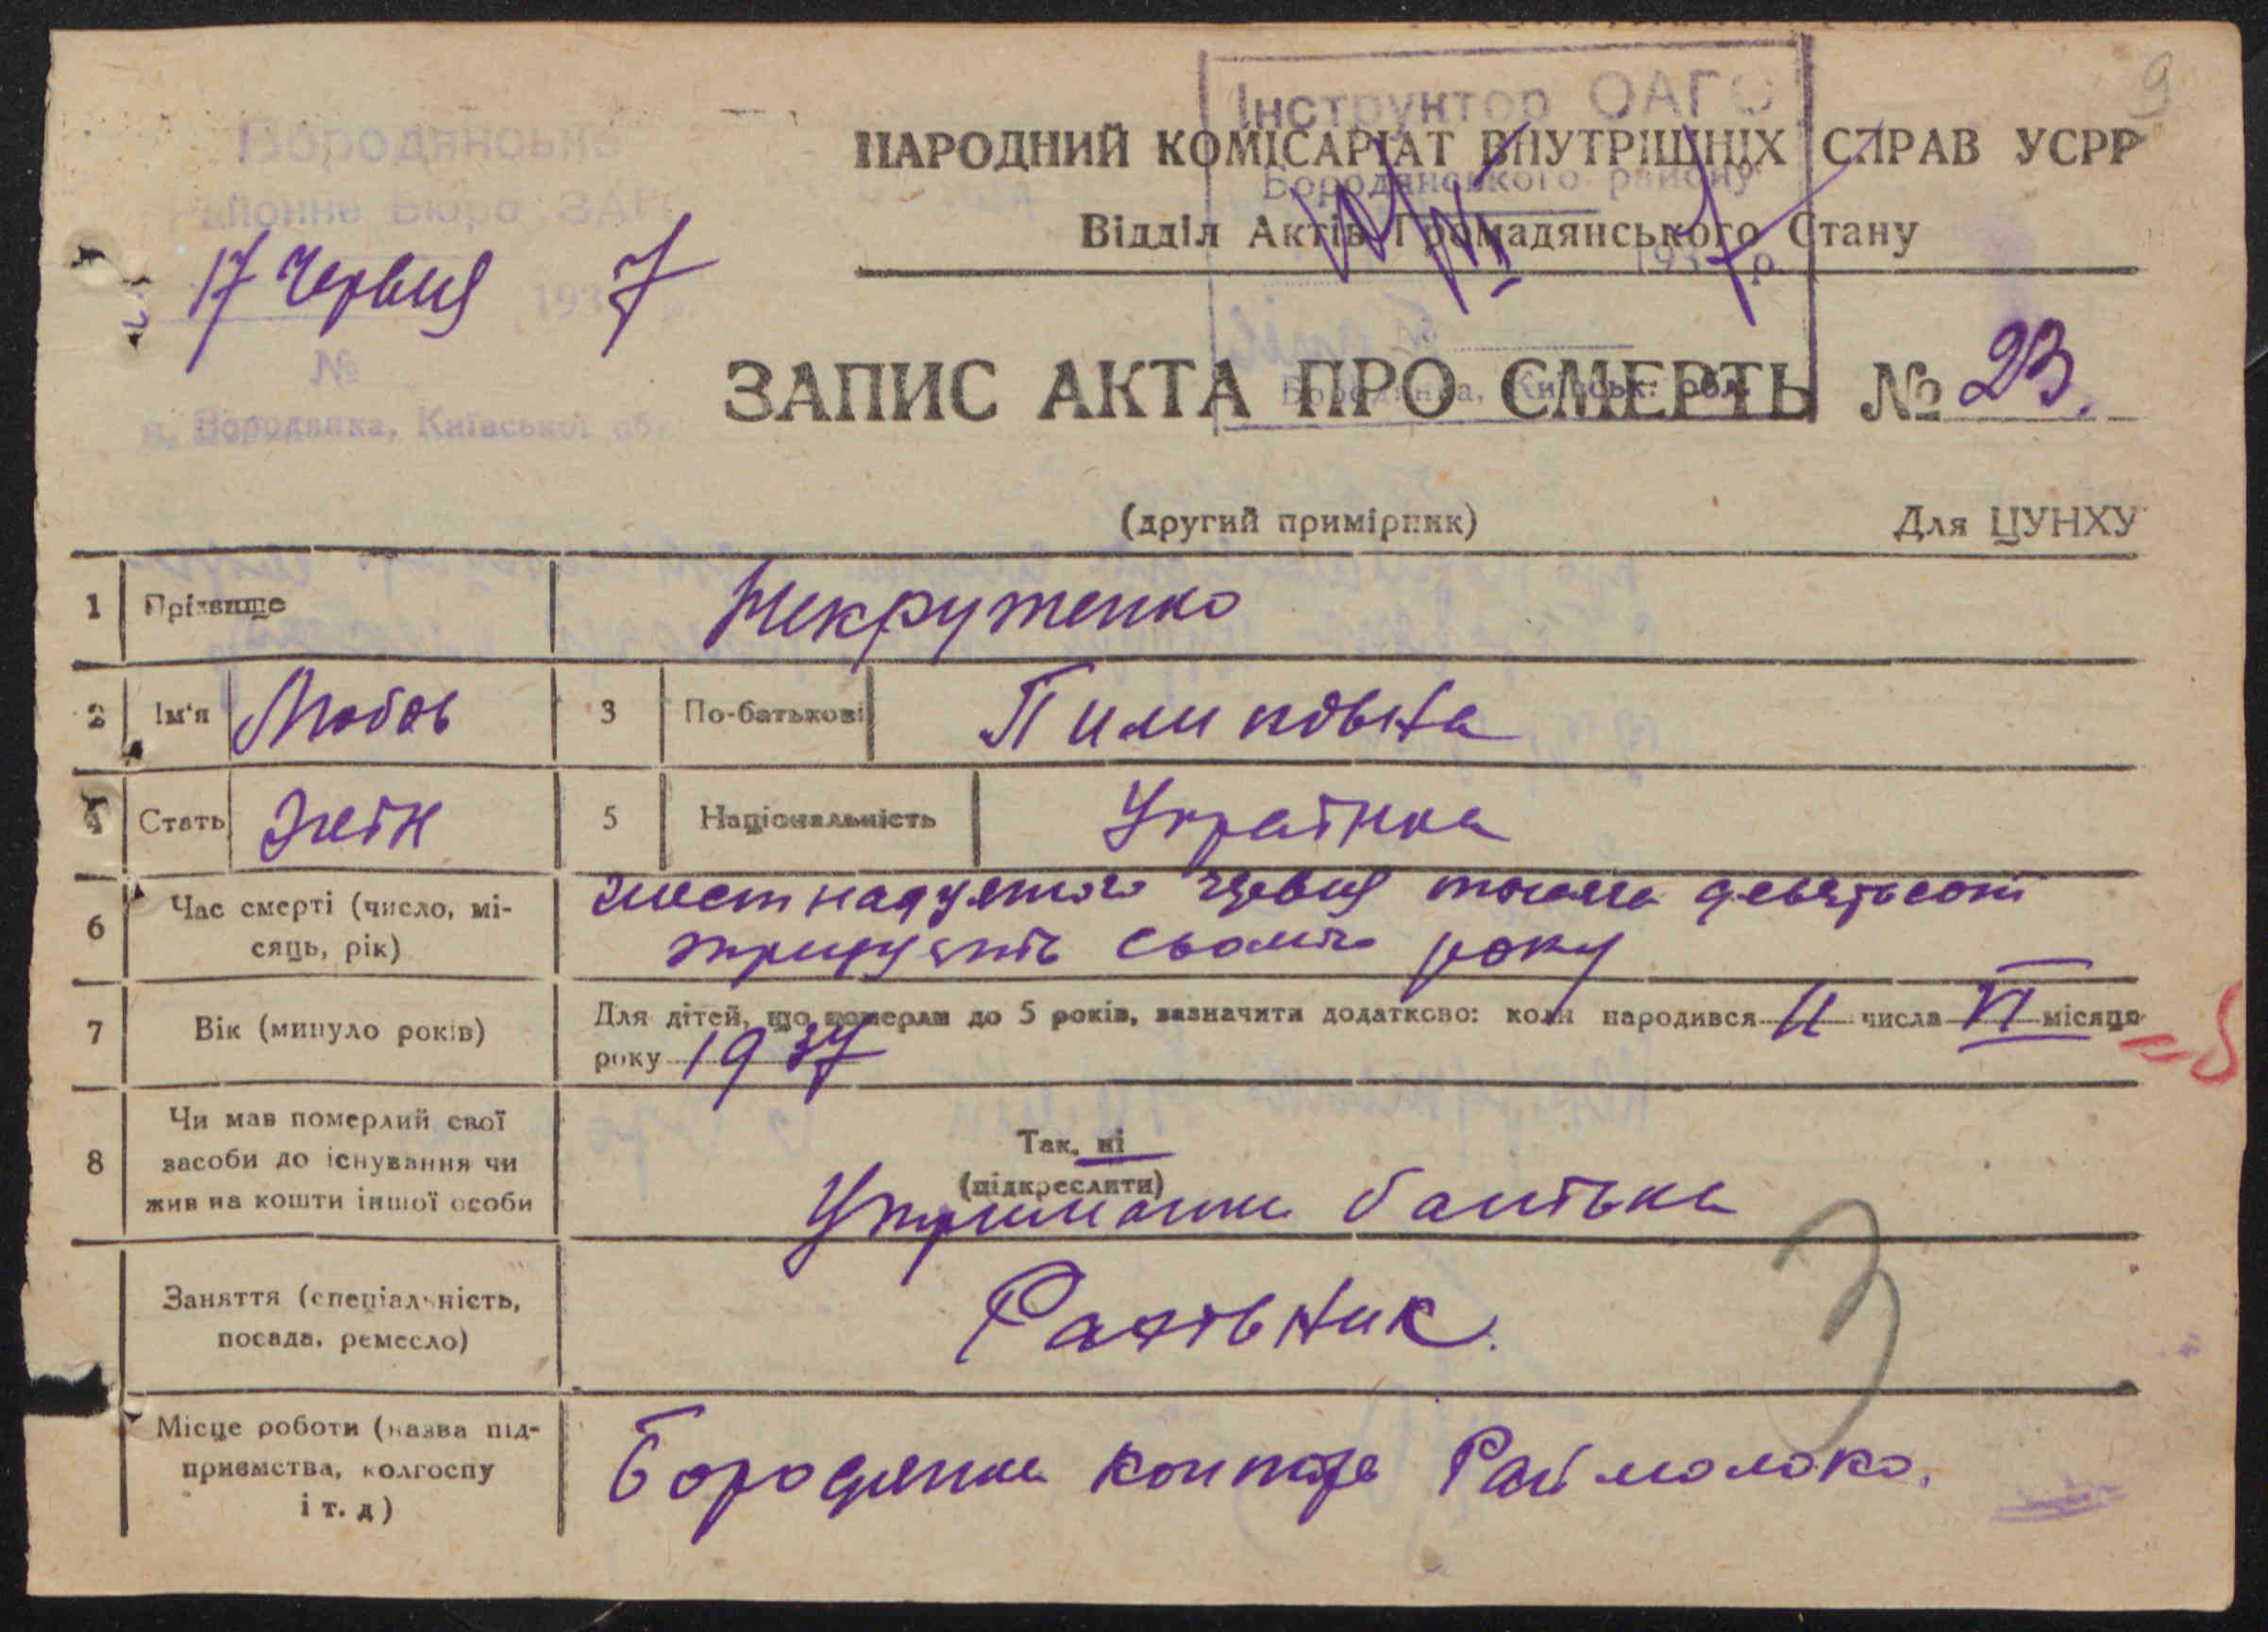 9
Інструктор ОАГС
Бородянського району
193 р.
Бородянка, Київськ. обл.
Бородянське
Районне Бюро ЗАГС
17 Червня 1937
№
п. Бородянка, Київської об.
НАРОДНИЙ КОМІСАРІАТ ВНУТРІШНІХ СПРАВ УСРР
Відділ Актів Громадянського Стану
ЗАПИС АКТА ПРО СМЕРТЬ № 23.
(другий примірник) Для ЦУНХУ
1 Прізвище Некрутенко
2 Ім'я Любов 3 По-батькові Пилиповна
4 Стать жін 5 Національність Українка
6 Час смерті (число, мі-
сяць, рік)
шестнадцятого червня тисяча девятьсот
тридцять сьомого року
7 Вік (минуло років) Для дітей, що померли до 5 років, зазначити додатково: коли народився 11 числа VI місяця
року 1937
= 5
8 Чи мав померлий свої
засоби до існування чи
жив на кошти іншої особи
Так, ні
(підкреслити)
Утримании батька
Заняття (спеціальність,
посада, ремесло)
Рахівник.
3
Місце роботи (назва під-
приємства, колгоспу
і т. д)
Бородянка контора Раймолоко.